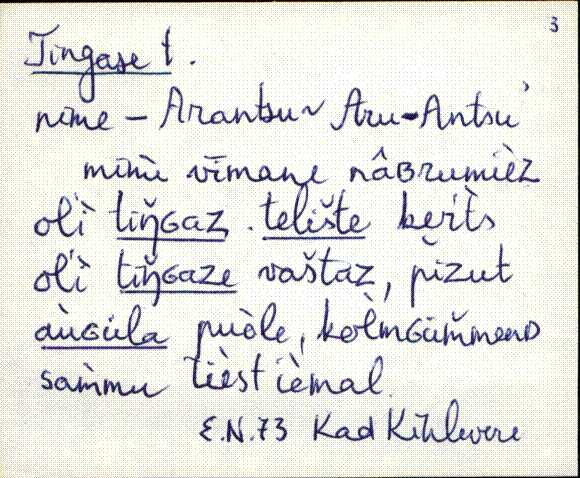 3
Tingase t.
nime – Arantsu ~ Aru-Antsu'
mìnu vīmane nâʙrumièz
olì tiŋ̆ɢaz. telište keríts
olì tiŋ̆ɢaze vaštaz, pizut
àùɢùla puòle, kolmɢüm̆menᴅ
sam̀mu tièst ièmal.
E.N.73 Kad Kihlevere